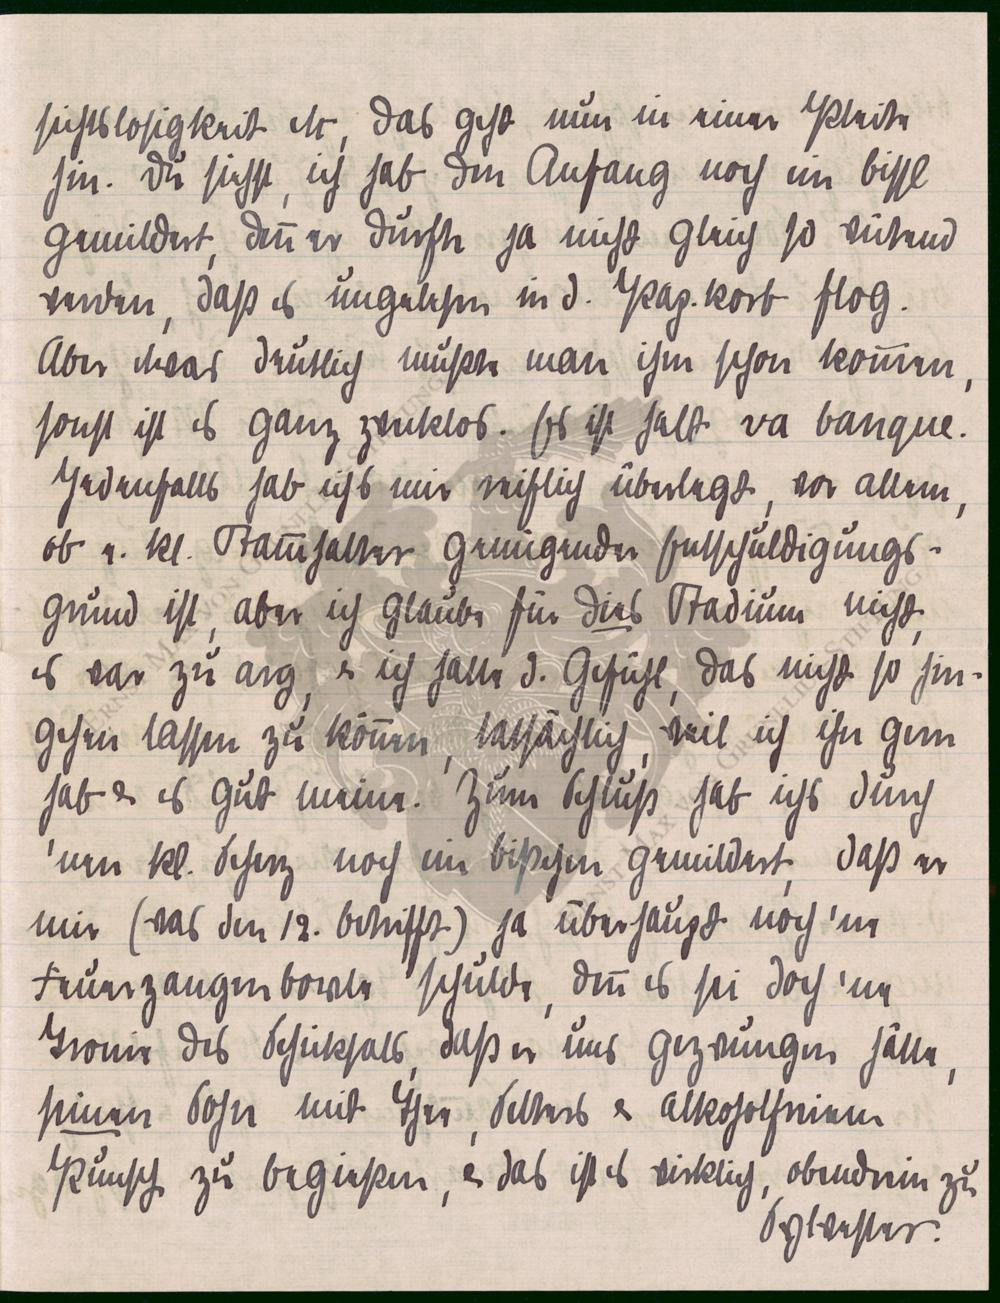 sichtslosigkeit etc, das geht nun in einer Pleite
hin. Du siehst, ich hab den Anfang noch ein bissl
gemildert, deñ er durfte ja nicht gleich so wütend
werden, daß es ungelesen in d. Pap.korb flog.
Aber etwas deutlich mußte man ihm schon kom̃en,
sonst ist es ganz zwecklos. Es ist halt va banque.
Jedenfalls hab ichs mir reiflich überlegt, vor allem,
ob e. kl. Stam̃halter genügender Entschuldigungs-
grund ist, aber ich glaube für dies Stadium nicht,
es war zu arg, & ich hatte d. Gefühl, das nicht so hin-
gehen lassen zu köñen, tatsächlich, weil ich ihn gern
hab & es gut meine. Zum Schluß hab ichs durch
'nen kl. Scherz noch ein bißchen gemildert, daß er
mir (was den 12. betrifft) ja überhaupt noch 'ne
Feuerzangenbowle schulde, deñ es sei doch 'ne
Ironie des Schicksals, daß er uns gezwungen hätte,
seinen Sohn mit Thee, Selters & alkoholfreiem
Punsch zu begießen, & das ist es wirklich, obendrein zu
Sylvester.
ERNST MAX VON GRUNELIUS-STIFTUNG
ERNST MAX VON GRUNELIUS-STIFTUNG